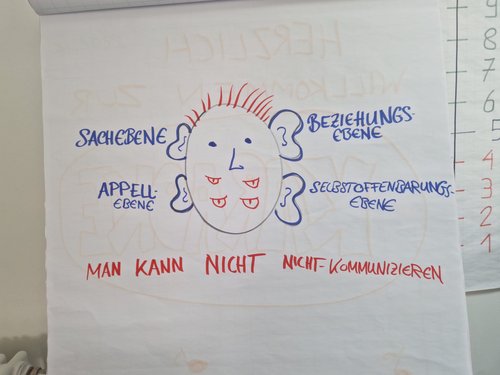 SACHEBENE
BEZIEHUNGS-
EBENE
APPELL-
EBENE
SELBSTOFFENBARUNGS-
EBENE
MAN KANN NICHT NICHT-KOMMUNIZIEREN
HERZLICH
WILLKOMMEN ZUR
8
7
6
5
4
3
2
1